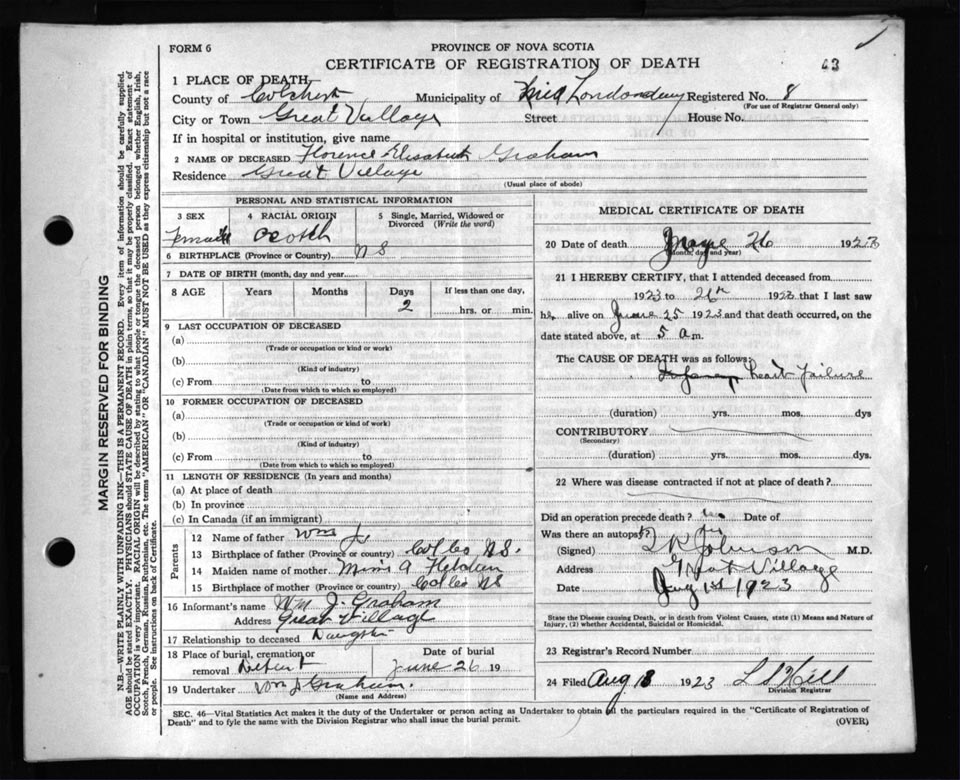 FORM 6
PROVINCE OF NOVA SCOTIA
CERTIFICATE OF REGISTRATION OF DEATH
43
1 PLACE OF DEATH,
County of Colchester Municipality of Londonderry Registered No. 8
(For use of Registrar General only)
City or Town Great Village Street House No.
If in hospital or institution, give name
2 NAME OF DECEASED Florence Elisabeth Graham
Residence Great Village
(Usual place of abode)
PERSONAL AND STATISTICAL INFORMATION
3 SEX 4 RACIAL ORIGIN 5 Single, Married, Widowed or Divorced (Write the word)
Female Scotch
6 BIRTHPLACE (Province or Country) N S
7 DATE OF BIRTH (month, day and year)
8 AGE Years Months Days If less than one day,
2 hrs. or min.
9 LAST OCCUPATION OF DECEASED
(a)
(Trade or occupation or kind or work)
(b)
(Kind of industry)
(c) From to
(Date from which to which so employed)
10 FORMER OCCUPATION OF DECEASED
(a)
(Trade or occupation or kind of work)
(b)
(Kind of industry)
(c) From to
(Date from which to which so employed)
11 LENGTH OF RESIDENCE (In years and months)
(a) At place of death
(b) In province
(c) In Canada (if an immigrant)
Parents
12 Name of father Wm J.
13 Birthplace of father (Province or country) Col Co NS.
14 Maiden name of mother A
15 Birthplace of mother (Province or country) Col Co NS
16 Informant's name Wm J. Graham
Address Great Village
17 Relationship to deceased Daughter
18 Place of burial, cremation or removal Debert
Date of burial June 26 19
19 Undertaker Wm J Graham.
(Name and Address)
MEDICAL CERTIFICATE OF DEATH
20 Date of death June 26 1923
(Month, day and year)
21 I HEREBY CERTIFY, that I attended deceased from
1923 to 26th 1923 that I last saw
he alive on June 25 1923 and that death occurred, on
date stated above, at 5 a.m.
The CAUSE OF DEATH was as follows:
heart failure
(duration) yrs. mos. dys
CONTRIBUTORY
(Secondary)
(duration) yrs. mos. dys.
22 Where was disease contracted if not at place of death?
Did an operation precede death? Date of
Was there an autopsy?
(Signed) Johnson M.D.
Address Great Village
Date Aug 1st 1923
State the Disease causing Death, or in death from Violent Causes, state (1) Means and Nature of
Injury, (2) whether Accidental, Suicidal or Homicidal.
23 Registrar's Record Number
24 Filed Aug 8 1923 L S Hill
Division Registrar
SEC. 46—Vital Statistics Act makes it the duty of the Undertaker or person acting as Undertaker to obtain all the particulars required in the "Certificate of Registration of
Death" and to fyle the same with the Division Registrar who shall issue the burial permit.
(OVER)
MARGIN RESERVED FOR BINDING
N.B.—WRITE PLAINLY WITH UNFADING INK—THIS IS A PERMANENT RECORD. Every item of information should be carefully supplied.
AGE should be stated EXACTLY. PHYSICIANS should STATE CAUSE OF DEATH in plain terms, so that it may be properly classified. Exact statement of
OCCUPATION is very important. RACIAL ORIGIN will be described by stating to what people or tongue the deceased person belonged whether English, Irish,
Scotch, French, German, Russian, Ruthenian, etc. The terms "AMERICAN" OR "CANADIAN" MUST NOT BE USED as they express citizenship but not a race
or people. See instructions on back of Certificate.